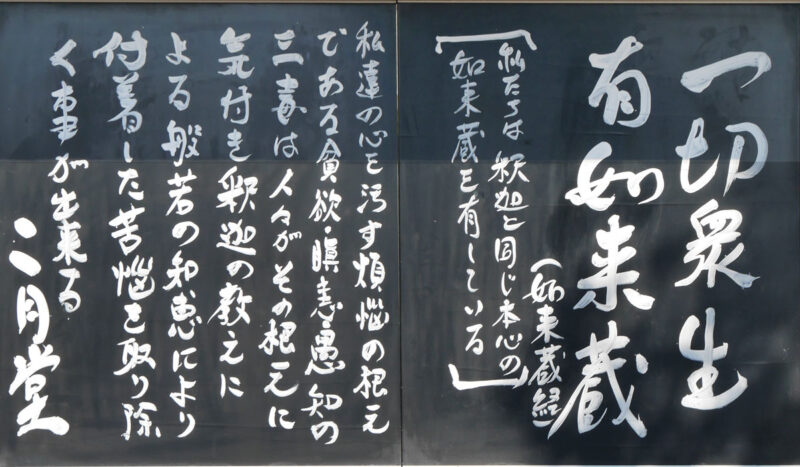 一切衆生
有如来蔵
(如来蔵経)
「私たちは釈迦と同じ本心の
如来蔵を有している」
私達の心を汚す煩悩の根元
である貪欲・瞋恚・愚知の
三毒は人々がその根元に
気付き釈迦の教えに
よる般若の知恵により
付着した苦悩を取り除
く事が出来る
二月堂